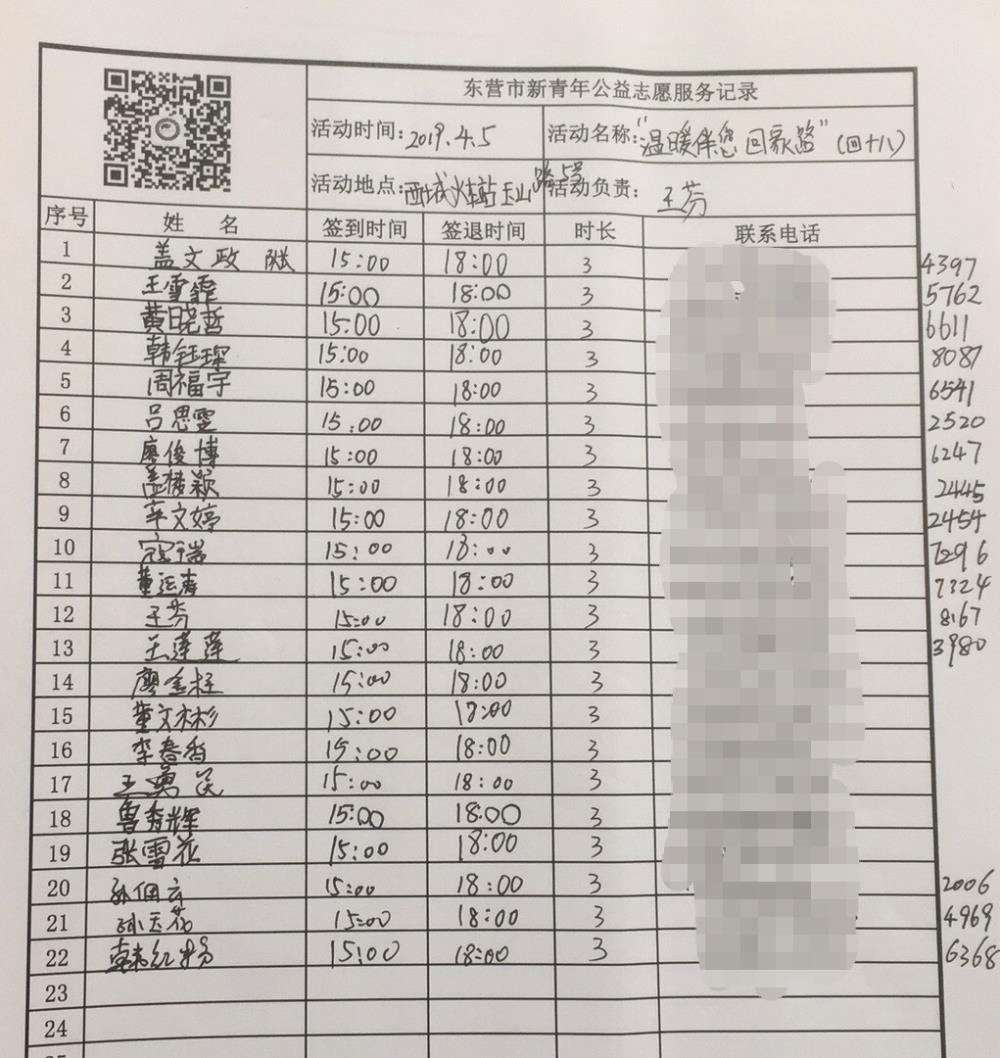 东营市新青年公益志愿服务记录
活动时间:2019.4.5 活动名称:"温暖伴您回家路"(四十八)
活动地点:西城火车站玉山路5号 活动负责:王芬
序号 姓 名 签到时间 签退时间 时长 联系电话
1 盖文政 15:00 18:00 3 4397
2 王雪霏 15:00 18:00 3 5762
3 黄晓哲 15:00 18:00 3 6611
4 韩钰琛 15:00 18:00 3 8087
5 周福宇 15:00 18:00 3 6541
6 吕思雯 15:00 18:00 3 2520
7 廖俊博 15:00 18:00 3 6247
8 15:00 18:00 3 2445
9 辛文婷 15:00 18:00 3 2454
10 寇瑞 15:00 18:00 3 7296
11 董运涛 15:00 18:00 3 7324
12 王芬 15:00 18:00 3 8167
13 王莲莲 15:00 18:00 3 3980
14 廖金柱 15:00 18:00 3
15 董文彬 15:00 18:00 3
16 李春香 15:00 18:00 3
17 王勇民 15:00 18:00 3
18 鲁秀辉 15:00 18:00 3
19 张雪花 15:00 18:00 3
20 孙佃云 15:00 18:00 3 2006
21 孙玉花 15:00 18:00 3 4969
22 韩红粉 15:00 18:00 3 6368
23
24